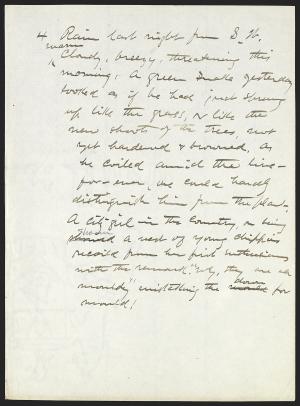 4 Rain last night from S.W.
warm
Cloudy, breezy, threatening this
morning. A green snake yesterday
looked as if he had just sprung
up like the grass, or like the
new shoots of the trees, not
yet hardened & browned, as
he coiled amid the live-
for-ever, we could hardly
distinguish him from the plant.
A city girl in the country, on being
shown
a nest of young chippies
recoiled from her first
with the remark "Why, they are all
mouldy" mistaking the down for
mould!